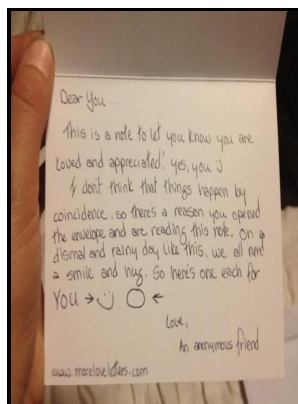 Dear You ...
This is a note to let you know you are
loved and appreciated! Yes, you :)
I don't think that things happen by
coincidence, so there's a reason you opened
the envelope and are reading this note. On a
dismal and rainy day like this, we all need
a smile and hug. So here's one each for
YOU → :) O ←
Love,
An anonymous friend
www.moreloveletters.com